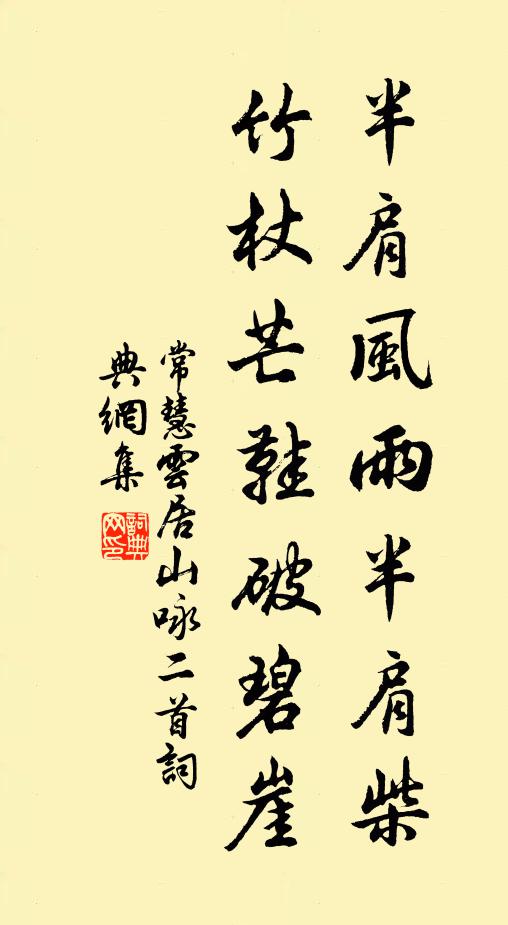 半肩風雨半肩柴
竹杖芒鞋破碧崖
常慧雲居山咏二首詞
典網集
詞典
网印